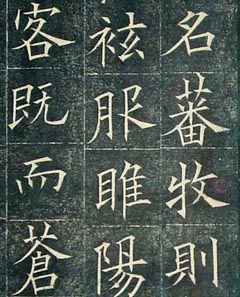 名蕃牧則
袨服睢陽
客既而蒼